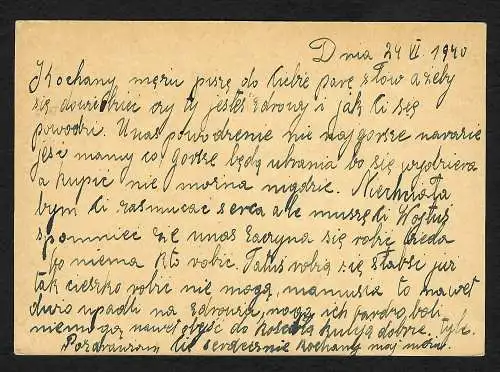 Dnia 24 VI 1940
Kochany mężu piszę do Ciebie parę słów ażeby
się dowiedzieć czy ty jesteś zdrowy i jak ci się
powodzi. U nas powodzenie nie naj gorsze narazie
jeść mamy co gorsze będą ubrania bo się wydziera
a kupić nie można nigdzie. Niechciała
bym Ci zasmucać serca ale muszę Ci
spomnieć że unas zaczyna się robić bieda
bo niema kto robić. Tatuś robią się słabsi już
tak ciężko robić nie mogą, mamusia to nawet
dużo upadli na zdrowiu, nogi ich bardzo bolą
niemogą nawet dojść do kościoła kuleją dobrze. tyle.
Pozdrawiam Cię serdecznie kochany mój mężu.